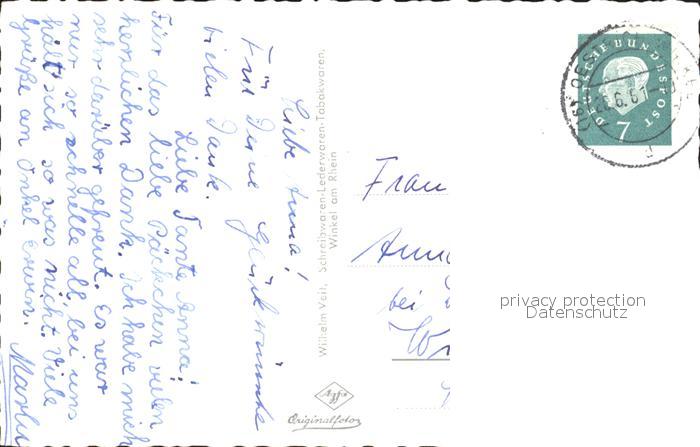 Liebe Anna!
Für Deine Glückwünsche
vielen Dank.
Liebe Tante Anna!
Für das liebe Päckchen vielen
herzlichen Dank. Ich habe mich
sehr darüber gefreut. Es war
nur so schnelle all, bei uns
hält sich so was nicht. Viele
Grüße an Onkel Erwin. Marlis
Wilhelm Veit, Schreibwaren-Lederwaren-Tabakwaren,
Winkel am Rhein
Agfa
Originalfoto
DEUTSCHE BUNDESPOST
7
26.6.61
Frau
Anna
bei
privacy protection
Datenschutz